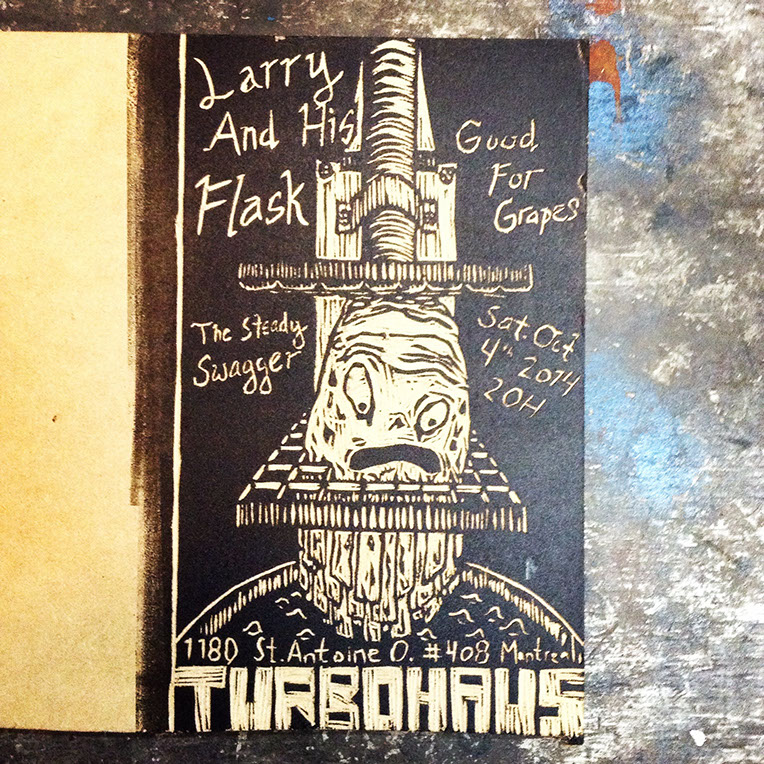 Larry
And His
Flask
Good
For
Grapes
The Steady
Swagger
Sat. Oct
4th 2014
20H
1180 St. Antoine O. #408 Montreal
TURBOHAUS